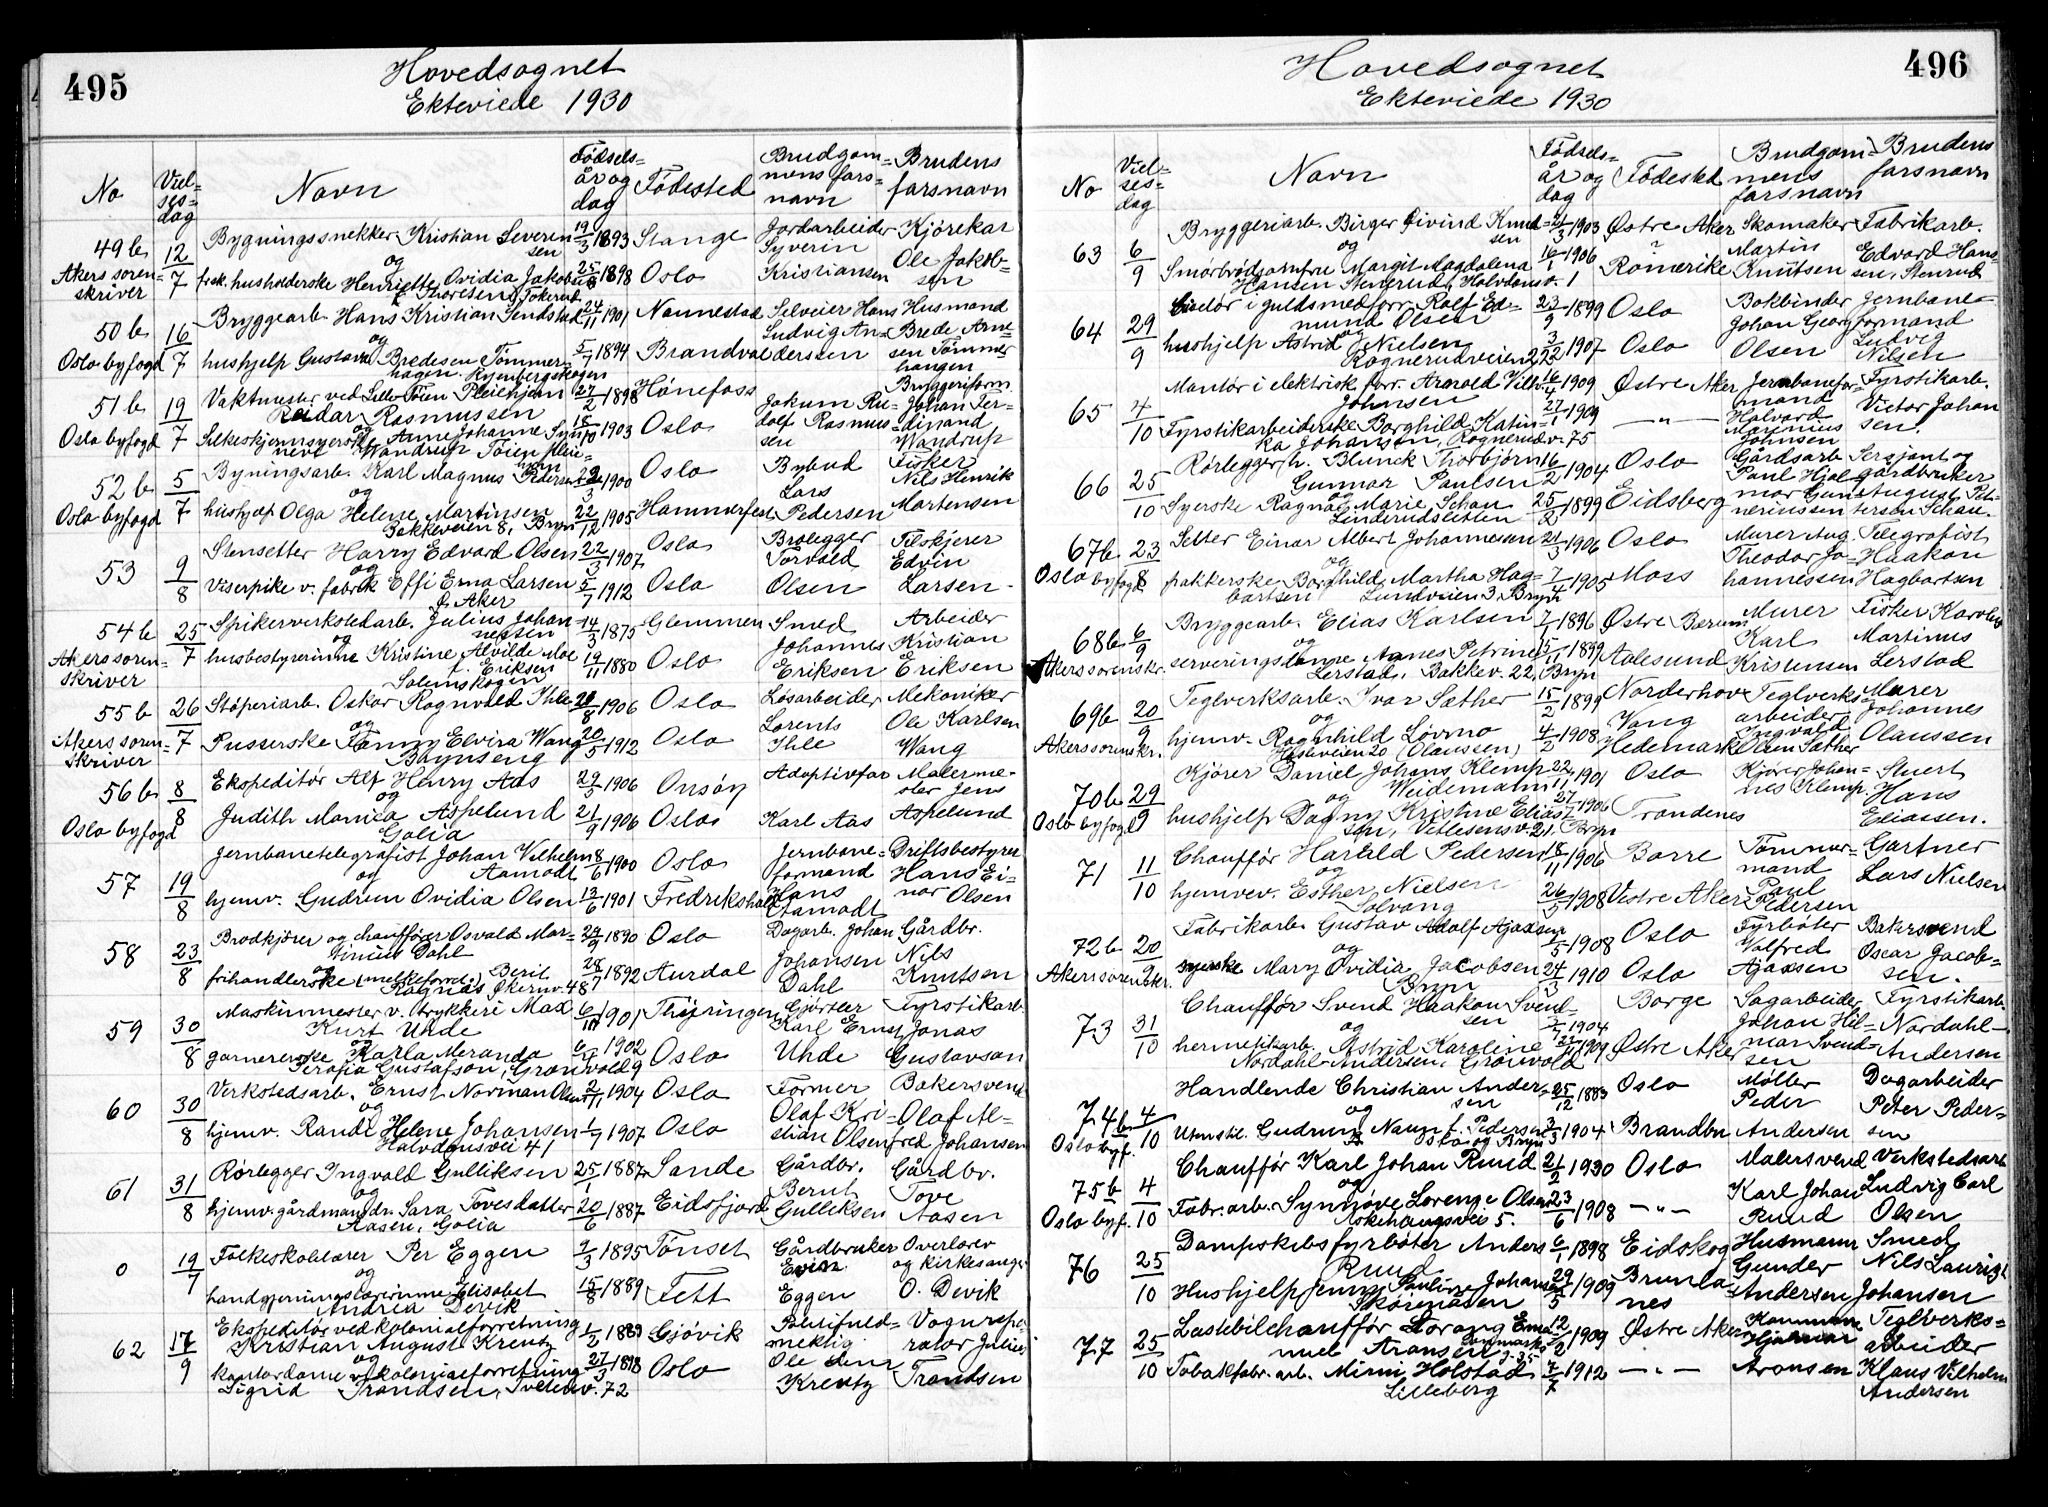 495
Hovedsognet
Ekteviede 1930
No
Viel=
ses=
dag
Navn
Fødsels=
år og
dag
Fødested
Brudgom=
mens fars=
navn
Brudens
farsnavn
49b 12/7 Bygningssnekker Kristian Severin= 19/3 1893 Stange Jordarbeider Kjørekar
sen Syverin Ole Jakob=
Akers soren= og Kristiansen sen
skriver husholderske Henriette Ovidia Jakobsen 25/8 1898 Oslo
f. Thoresen, Tokerud
50b 16/7 Bryggearb. Hans Kristian Sendstad 24/11 1901 Nannestad Selveier Hans Husmand
og Ludvig An= Brede Arne=
Oslo byfogd hushjelp Gustava Bredesen Tømmer= 5/7 1894 Brandval dersen sen Tømmer
hagen. hangen
51b 19/7 Vaktmester ved Lille Tøien Pleiehjem 27/2 1898 Hønefoss Jokum Ru= Bryggeriform.
Reidar Rasmussen dolf Rasmus= Johan Fer=
og sen dinand
Oslo byfogd Silkeskjermsyerske Anne Johanne Syn= 18/10 1903 Oslo Wandrup
nevt Wandrup Tøien pleie=
hjem
52b 5/7 Byningsarb. Karl Magnus Pedersen 22/3 1900 Oslo Bybud Fisker
og Lars Nils Henrik
Oslo byfogd hushjelp Olga Helene Martinsen 22/12 1905 Hammerfest Pedersen Martensen
Bakkeveien 8, Bryn
53 9/8 Stensetter Harry Edvard Olsen 22/3 1907 Oslo Brolegger Filskjerer
og Torvald Edvin
Viserpike v. fabrik Effi Erna Larsen 5/7 1912 Oslo Olsen Larsen
Ø. Aker
54b 25/7 Spikerverkstedarb. Julius Johan= 14/3 1875 Glemmen Smed Arbeider
nessen Johannes Kristian
Akers soren= og
skriver husbestyrerinne Kristine Alvilde Moe 19/11 1880 Oslo Eriksen Eriksen
f. Eriksen
Solemskogen
55b 26/7 Støperiarb. Oskar Ragnvald Ihle 28/8 1906 Oslo Løsarbeider Mekaniker
og Lorents Ole Karlsen
Akers soren= Pusserske Fanny Elvira Wang 20/5 1912 Oslo Ihle Wang
skriver Brynseng
56b 8/8 Ekspeditør Alf Henry Aas 29/5 1906 Onsøy Adoptivfar Malerme=
og ster Jens
Oslo byfogd Judith Monica Aspelund 21/9 1906 Oslo Karl Aas Aspelund
Golia
57 19/8 Jernbanetelegrafist Johan Vilhelm 8/6 1900 Oslo Jernbane= Driftsbestyrer
Aamodt formand Hans Ei=
og Hans nar Olsen
hjemv. Gudrun Ovidia Olsen 13/6 1901 Fredrikshald Aamodt
58 23/8 Brødkjører og chauffør Osvald Mar= 29/9 1890 Oslo Dagarb. Johan Gårdbr.
tinius Dahl Johansen Nils
og
frihandlerske (melkeforr.) Berit 28/7 1892 Aurdal Dahl Knutsen
Ragnås Økernv. 48
59 30/8 Maskinmester v. trykkeri Max 6/10 1901 Thyringen Gjørtler Fyrstikarb.
Kurt Uhde Karl Ernst Jonas
og
garnererske Karla Meranda 6/4 1902 Oslo Uhde Gustavson
Serafia Gustafson, Grønvold 9
60 30/8 Verkstedsarb. Ernst Norman Olsen 2/11 1904 Oslo Former Bakersvend
og Olaf Kri= Olaf Al=
hjemv. Randi Helene Johansen 1/9 1907 Oslo stian Olsen fred Johansen
Halvdansvei 41
61 31/8 Rørlegger Ingvald Gulliksen 25/1 1887 Sande Gårdbr. Gårdbr.
og Bernt Tove
hjemv. gårdmandr. Sara Tovesdatter 20/6 1887 Eidsfjord Gulliksen Aasen
Aasen, Golia
0 19/7 Folkeskolelærer Per Eggen 9/3 1895 Tønset Gårdbruker Overlærer
og og kirkesanger
handgjerningslærerinne Elisabet 15/8 1889 Fett Eggen O. Devik
Andrea Devik
62 17/9 Ekspeditør ved kolonialforretning 1/2 1889 Gjøvik Vognrepe=
Kristian August Krentz mektig ratør Julius
og
kontordame v. kolonialforretning 27/3 1898 Oslo Ole Krentz Trondsen
Sigrid Trondsen, Tvetenv. 72
496
Hovedsognet
Ekteviede 1930
No
Viel=
ses=
dag
Navn
Fødsels=
år og
dag
Fødested
Brudgom=
mens
farsnavn
Brudens
farsnavn
63 6/9 Bryggeriarb. Birger Øivind Knud= 21/3 1903 Østre Aker Skomaker Fabrikarb.
sen Martin Edvard Han=
og
Smørbrødjomfru Margit Magdalena 16/1 1906 Romerike Knutsen sen, Stenrud
Hansen Stenerud, Halvdansv. 1
64 29/9 Siselør i guldsmedforr. Rolf Ed= 23/9 1899 Oslo Bokbinder Jernbane=
mund Olsen Johan Georg formand
og Ludvig
hushjelp Astrid Nielsen 3/2 1907 Oslo Olsen Nilsen
Rognerudveien 22
65 4/10 Montør i elektrisk forr. Arnold Vilh. 16/4 1909 Østre Aker Jernbanefor= Fyrstikarb.
Johnsen mand Victor Johan
Fyrstikarbeiderske Borghild Katin= 27/1 1909 —"— Halvard sen.
ka Johansen, Rognerudv. 75 Marinius
Johnsen
66 25/10 Rørlegger h. Blunck Thorbjørn 16/2 1904 Oslo Gårdsarb. Sersjant og
Gunnar Paulsen Paul Hjal= gårdbruker
og
Syerske Ragna Marie Schau 25/2 1899 Eidsberg mar Gun= August Pet=
Linderudsletten neriussen tersen Schau.
67b 23/8 Setter Einar Albert Johannesen 21/3 1906 Oslo Murer Aug. Telegrafist
og Theodor Jo= Haakon
Oslo byfogd pakkerske Borghild Martha Hag= 7/4 1905 Moss hannessen Hagbartsen
bartsen Lundveien 3 Bryn
68b 6/9 Bryggearb. Elias Karlsen 7/1 1896 Østre Bærum Murer Fisker Karolius
og Karl Martinus
Akers sorenskr. serveringsdame Agnes Petrine 15/11 1899 Aalesund Kristensen Lerstad
Lerstad, Bakkev. 22, Bryn
69b 20/9 Teglverksarb. Ivar Sæther 15/2 1899 Norderhov Teglverks= Murer
og arbeider Johannes
Akers sorenskr. hjemv. Ragnhild Løvmo 4/2 1908 Vang Ingvald Olaussen
Hasleveien 20 (Olaussen) Hedemark Olsen Sæther
70b 29/9 Kjører Daniel Johans Klemp 22/11 1901 Oslo Kjører Johan= Stuert
Weidemann nes Klemp. Hans
og
Oslo byfogd hushjelp Dagny Kristine Elias= 27/7 1906 Trondenes Eliassen.
sen, Vetlesensv. 21, Bryn
71 11/10 Chauffør Harald Pedersen 18/11 1906 Borre Tømmer= Gartner
og mand Lars Nielsen
hjemvev. Esther Nielsen 26/5 1908 Vestre Aker Paul
Solvang Pedersen
72b 20/9 Fabrikarb. Gustav Adolf Ajaxsen 1/5 1908 Oslo Fyrbøter Bakersvend
og Valfred Oscar Jacob=
Akers sorenskr. syerske Mary Ovidia Jacobsen 24/3 1910 Oslo Ajaxsen sen.
Bryn
73 31/10 Chauffør Svend Haakon Svend= 7/7 1904 Borge Sagarbeider Fyrstikarb.
sen Johan Hil= Nordahl-
og
hermetikarb. Astrid Karoline 1909 Østre Aker mar Svend= Andersen
Nordahl-Andersen, Grønvold sen
74b 4/10 Handlende Christian Ander= 25/12 1883 Oslo Møller Dagarbeider
sen Peder Peter Peder=
og
Oslo byf. Utenstil. Gudrun Naum f. Pedersen 3/3 1904 Brandbu Andersen sen
Oslo og Bryn
75b 4/10 Chauffør Karl Johan Ruud 21/2 1930 Oslo Malersvend Verkstedsarb.
og Karl Johan Ludvig Carl
Oslo byf. Fabr.arb. Synnøve Lorenze Olsen 23/6 1908 —"— Ruud Olsen
Askehaugsvei 5.
76 25/10 Dampskibsfyrbøter Anders 6/1 1898 Eidskog Husmann Smed
Ruud Gunder Nils Lauritz
Hushjelp Jenny Pauline Johansen 29/5 1909 Brunla= Andersen Johansen
Skøienåsen nes
77 25/10 Lastebilchauffør Lorang Ema= 12/2 1909 Østre Aker Hjalmar Teglverks=
nuel Aronsen arbeider
Tobakfabr. arb. Mimi Holstad 7/7 1912 —"— Aronsen Klaus Vilhelm
Lilleberg Andersen